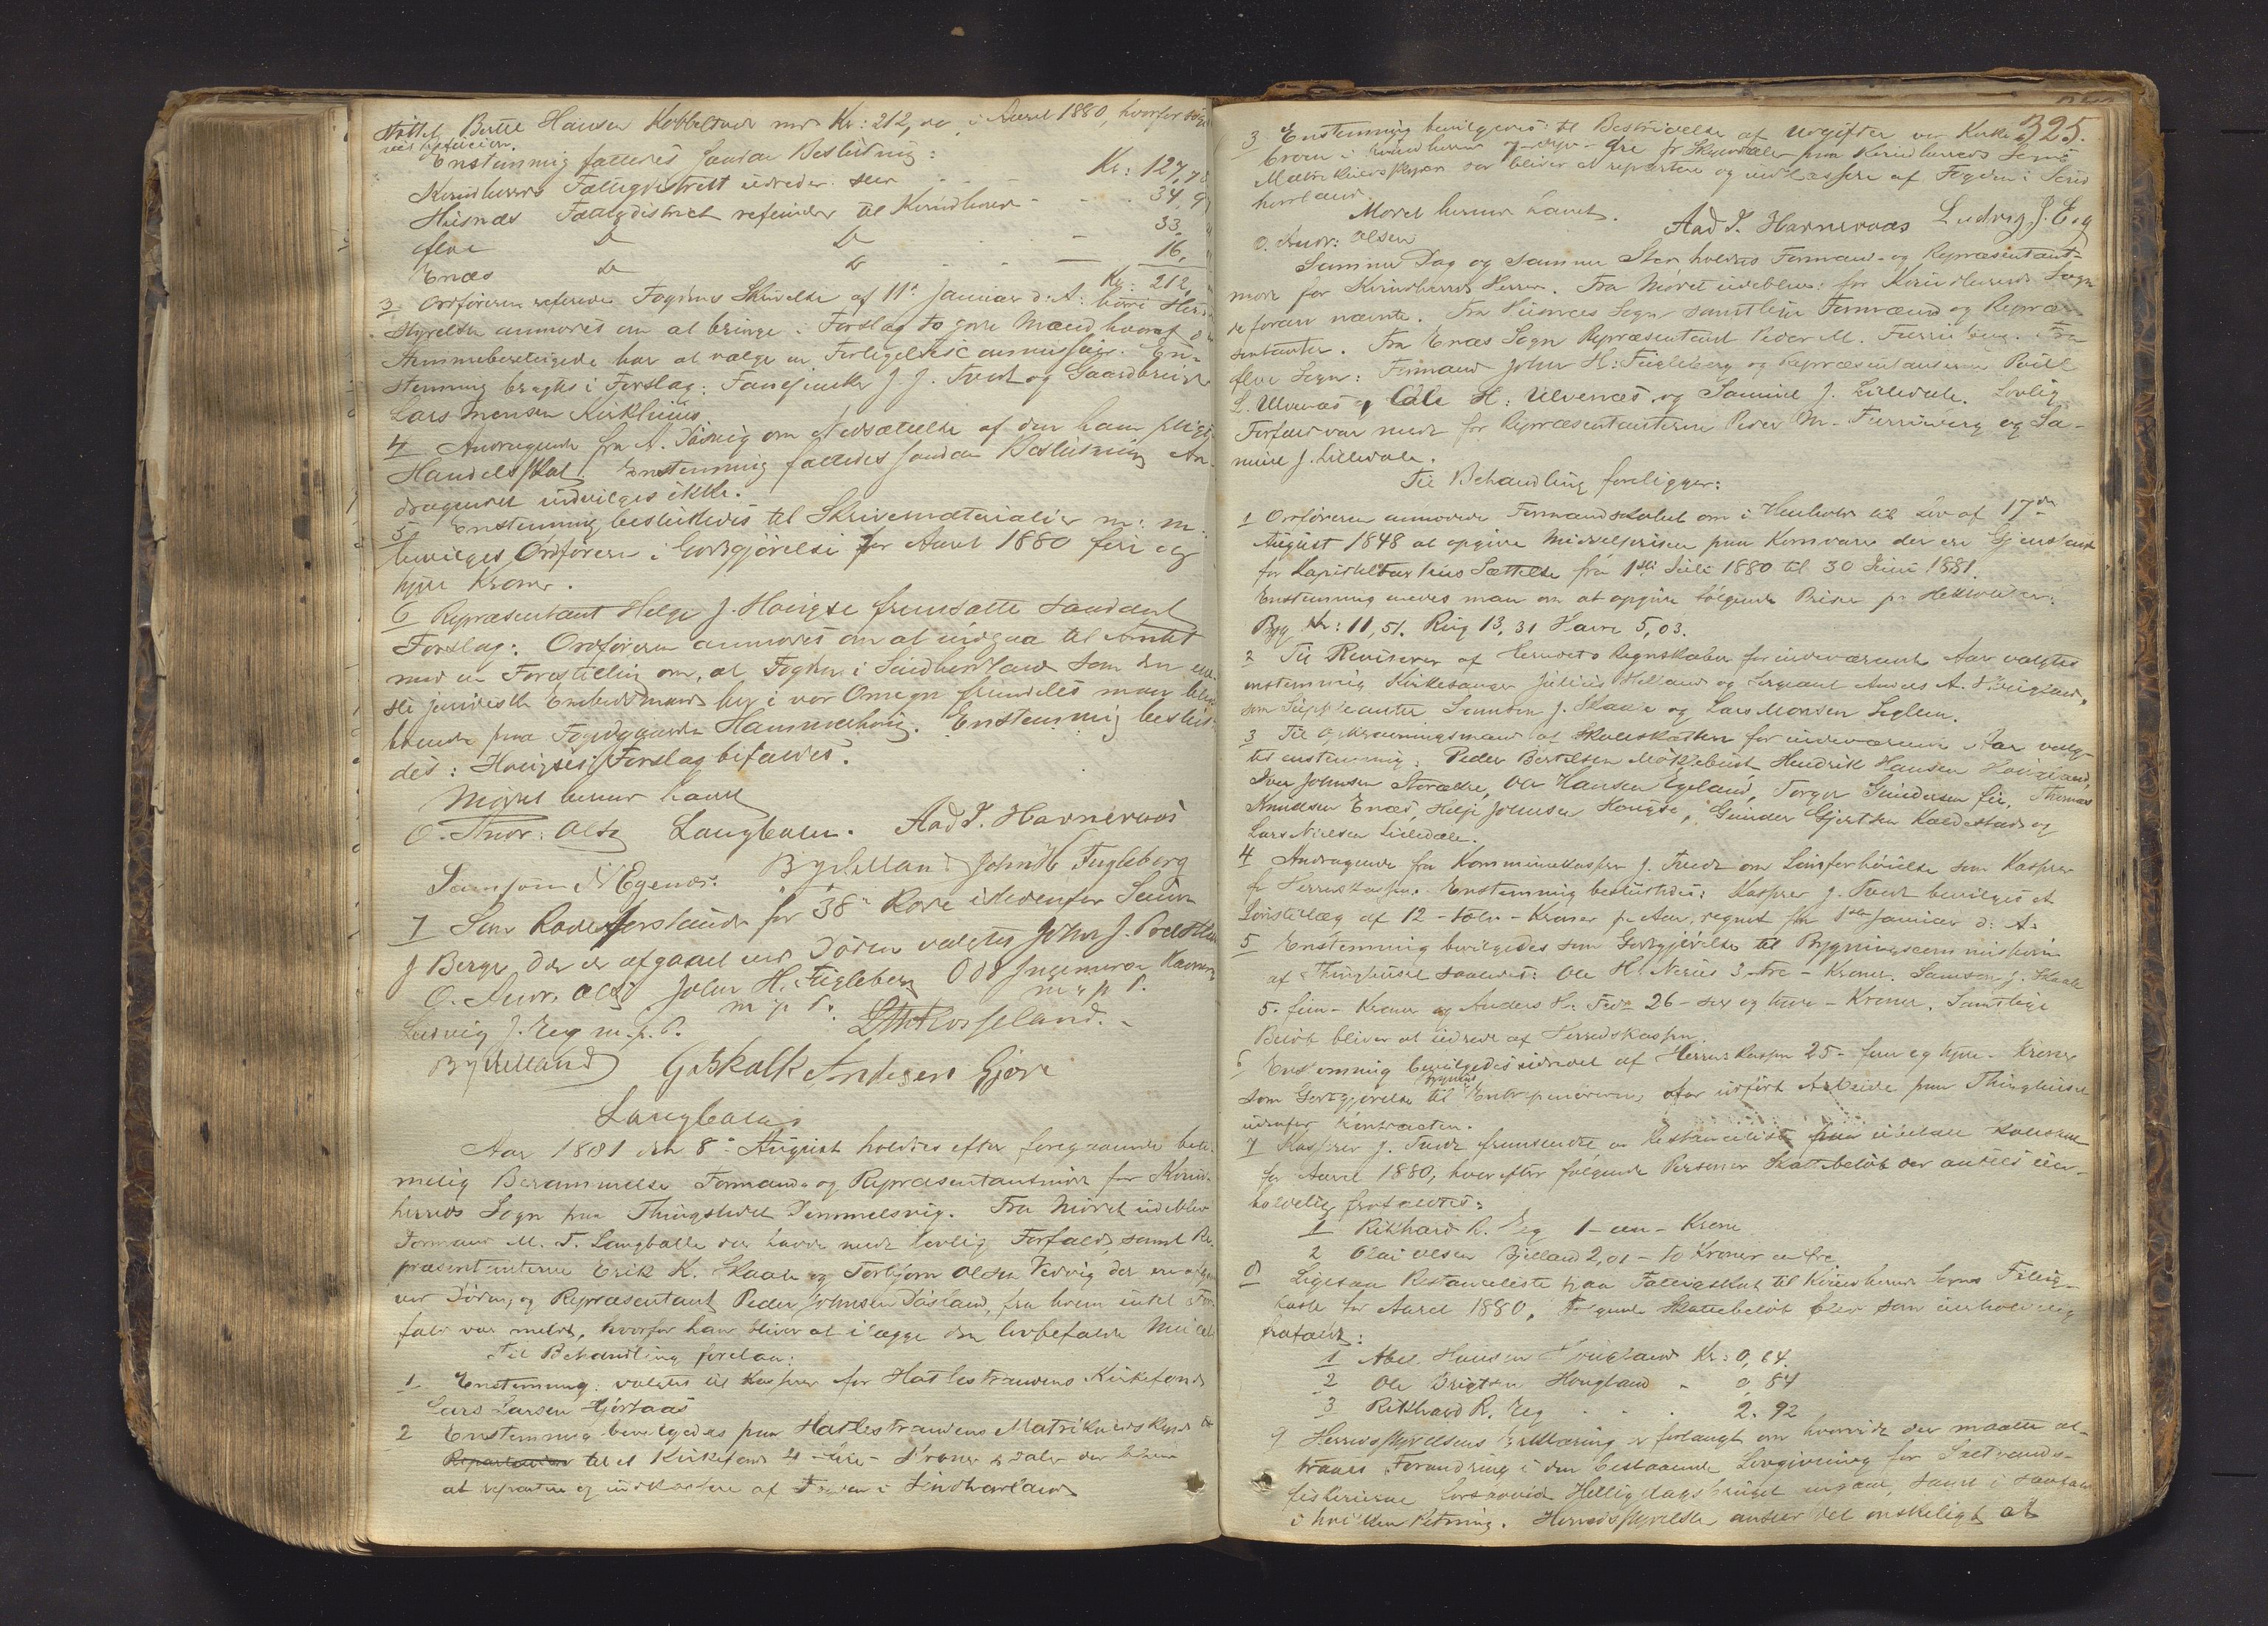 støttet Bertel Hansen Kobbeltvedt med Kr: 212, i Aaret 1880, hvorfor
Enstemmig fattedes saadan Beslutning:
Kvindherreds Fattigdistrikt udreder Kr: 127,
Husnæs Fattigdistrict refunder til Kvindherred - - - 34, 9
Ølve Do Do - 33
Enæs Do Do - 16,
Kr: 212,
3 Ordføreren refererede Fogdens Skrivelse af 11te Januar d: A: hvori Herreds
styrelsen anmodes om at bringe i Forslag to gode Mænd hvoraf de
Stemmeberettigede har at vælge en Forligelsescommissair. En-
stemmig bragtes i Forslag: J. J. Tvedt og Gaardbruger
Lars Monsen Kirkhuus
4 Andragende fra A. om Nedsættelse af den ham
Handelsskat. Enstemmig fattedes saadan Beslutning An-
dragendet indvilges ikke.
5 Enstemmig besluttedes til Skrivematerialier m: m:
bevilges Ordføreren i Godtgjørelse for Aaret 1880 fem og
tyve Kroner.
6 Repræsentant Helge J. Haugse fremsatte saadant
Forslag: Ordføreren anmodes om at indgaa til Amtet
med en Forestilling om, at Fogden i Søndhordland som den
ste juridiske Embedsmand her i vor Omegn fremdeles maa blive
boende paa Fogedgaarden Hammerhoug. Enstemmig beslut-
des: Haugses Forslag bifaldes.
Mødet hermed hævet
O. Andr: Olsen Langballe. Aad T. Harnevaas
Samson N Egenes. B Bjelland John H Fugleberg
7 Som Rodeforstander for 38te Rode istedenfor Samson
J Berge der er afgaaet ved Døden valgtes John J.
O. Andr. Olsen John H. Fugleberg Odd Ingemarsen
m. p. P. m. p. P.
Ludvig J. Eeg m. p. P. Rosseland.
B Bjelland G Skalk Andersen Gjøre
Langballe
Aar 1881 den 8de August holdtes efter foregaaende betі-
melig Berammelse Formands og Repræsentantmøde for Kvind-
herreds Sogn paa Thingstedet Dimmelsvig. Fra Mødet udeblev
Formand M. T. Langballe der havde meldt lovlig Forfald, samt Re-
præsentanterne Erik K. Skaale og Torbjørn Olsen Vedvig der ere afgaaet
ved Døden, og Repræsentant Peder Johnsen, fra hvem intet For-
fald var meldt, hvorfor han bliver at ilægge den lovbefalede Mulct
Til Behandling forelaa:
1 Enstemmig valgtes til Kasserer for Hatlestrandens Kirkefond
Lars Larsen
2 Enstemmig bevilgedes paa Hatlestrandens Matrikulskyld
Repartation til et Kirkefond 4 - fire - Kroner pr Daler der bliver
at repartere og indkassere af Fogden i Søndhordland
325.
3 Enstemmig bevilgedes til Bestridelse af Udgifter ved Kirke
broen i Kvindherred Øre pr Skylddaler paa Kvindherreds Sogns
Matrikulskyld der bliver at repartere og indkassere af Fogden i Sønd
hordland.
Mødet hermed hævet.
O. Andr: Olsen Aad T. Harnevaas Ludvig J. Eeg
Samme Dag og samme Sted holdtes Formand- og Repræsentant-
møde for Kvindherreds Herred. Fra Mødet udeblev: for Kvindherreds Sogn
de foran nævnte. Fra Husnæs Sogn samtlige Formænd og Repræ-
sentanter. Fra Enæs Sogn Repræsentant Peder M. Furuberg. Fra
Ølve Sogn: Formand John H: Fugleberg og Repræsentanterne Poul
L. Ulvenæs, Ole H: Ulvenæs og Samuel J. Lilledale. Lovlig
Forfald var meldt for Repræsentanterne Peder M. Furuberg og Sa-
muel J. Lilledale.
Til Behandling foreligger:
1 Ordføreren anmodede Formandskabet om i Henhold til Lov af 17de
August 1848 at opgive Middelprisen paa Kornvarer der ere Gjenstand
for Kapitelstaxtens Sættelse fra 1ste Juli 1880 til 30 Juni 1881.
Enstemmig enedes man om at opgive følgende Priser pr Hektoliter:
Byg Kr: 11,51. Rug 13,31 Havre 5,03.
2 Til Revisorer af Herredets Regnskaber for indeværende Aar valgtes
enstemmig Kirkesanger Julius Helland og Sergeant Anders A.
som Suppleanter Samson J. Skaale og Lars Monsen Seglem.
3 Til Opkrævningsmænd af Skoleskatten for indeværende Aar valg-
tes enstemmig: Peder Bertelsen Møklebust Hendrik Hansen Haugland,
Iver Johnsen Storækre, Ole Hansen Egeland, Torger Gundersen Thomas
Knudsen Enæs, Helje Johnsen Haugse, Gunder Gjertsen Kaldestad og
Lars Nielsen Lilledale.
4 Andragende fra Kommunekasserer J. Tvedt om Lønsforhøielse som Kasserer
for Herredskassen. Enstemmig besluttedes: Kasserer J. Tvedt bevilges et
Lønstillæg af 12 - tolv - Kroner pr Aar, regnet fra 1ste Januar d: A:
5 Enstemmig bevilgedes som Godtgjørelse til Bygningscommissionen
af Thinghuset saaledes: Ole H. Næres 3 - tre - Kroner. Samson J. Skaale
5 - fem - Kroner og Anders H. 26 - sex og tyve - Kroner. Samtlige
Beløb bliver at udrede af Herredskassen.
6 Enstemmig bevilgedes udredet af Herredskassen 25 - fem og tyve - Kroner
som Godtgjørelse til Entreprenørerne for udført Arbeide paa Thinghuset
udenfor Kontracten.
7 Kasserer J. Tvedt fremsendte en Restanceliste paa uibetalt
for Aaret 1880, hvorefter følgende Personer Skattebeløb der ansees uer-
holdelig frafaldtes:
1 Rikhard R. Eeg 1 - een - Krone
2 Olai Olsen Bjelland 2,01 - to Kroner en Øre
8 Ligesaa Restanceliste paa Fattigskat til Kvindherreds Sogns Fattig-
kasse for Aaret 1880. Følgende Skattebeløb blev som uerholdelig
frafaldt:
1 Abel Hansen Haugland Kr: 0,64.
2 Ole Brigtsen Haugland - 0,84
3 Rikhard R. Eeg . . 2.92
9 Herredsstyrelsens Erklæring er forlangt om hvorvidt der maatte at-
traaes Forandring i den bestaaende Lovgivning for Saltvands-
fiskerierne forsaavidt Helligdagsbruget angaar, samt i saafald
i hvilken Retning. Herredsstyrelsen anseer det ønskeligt at